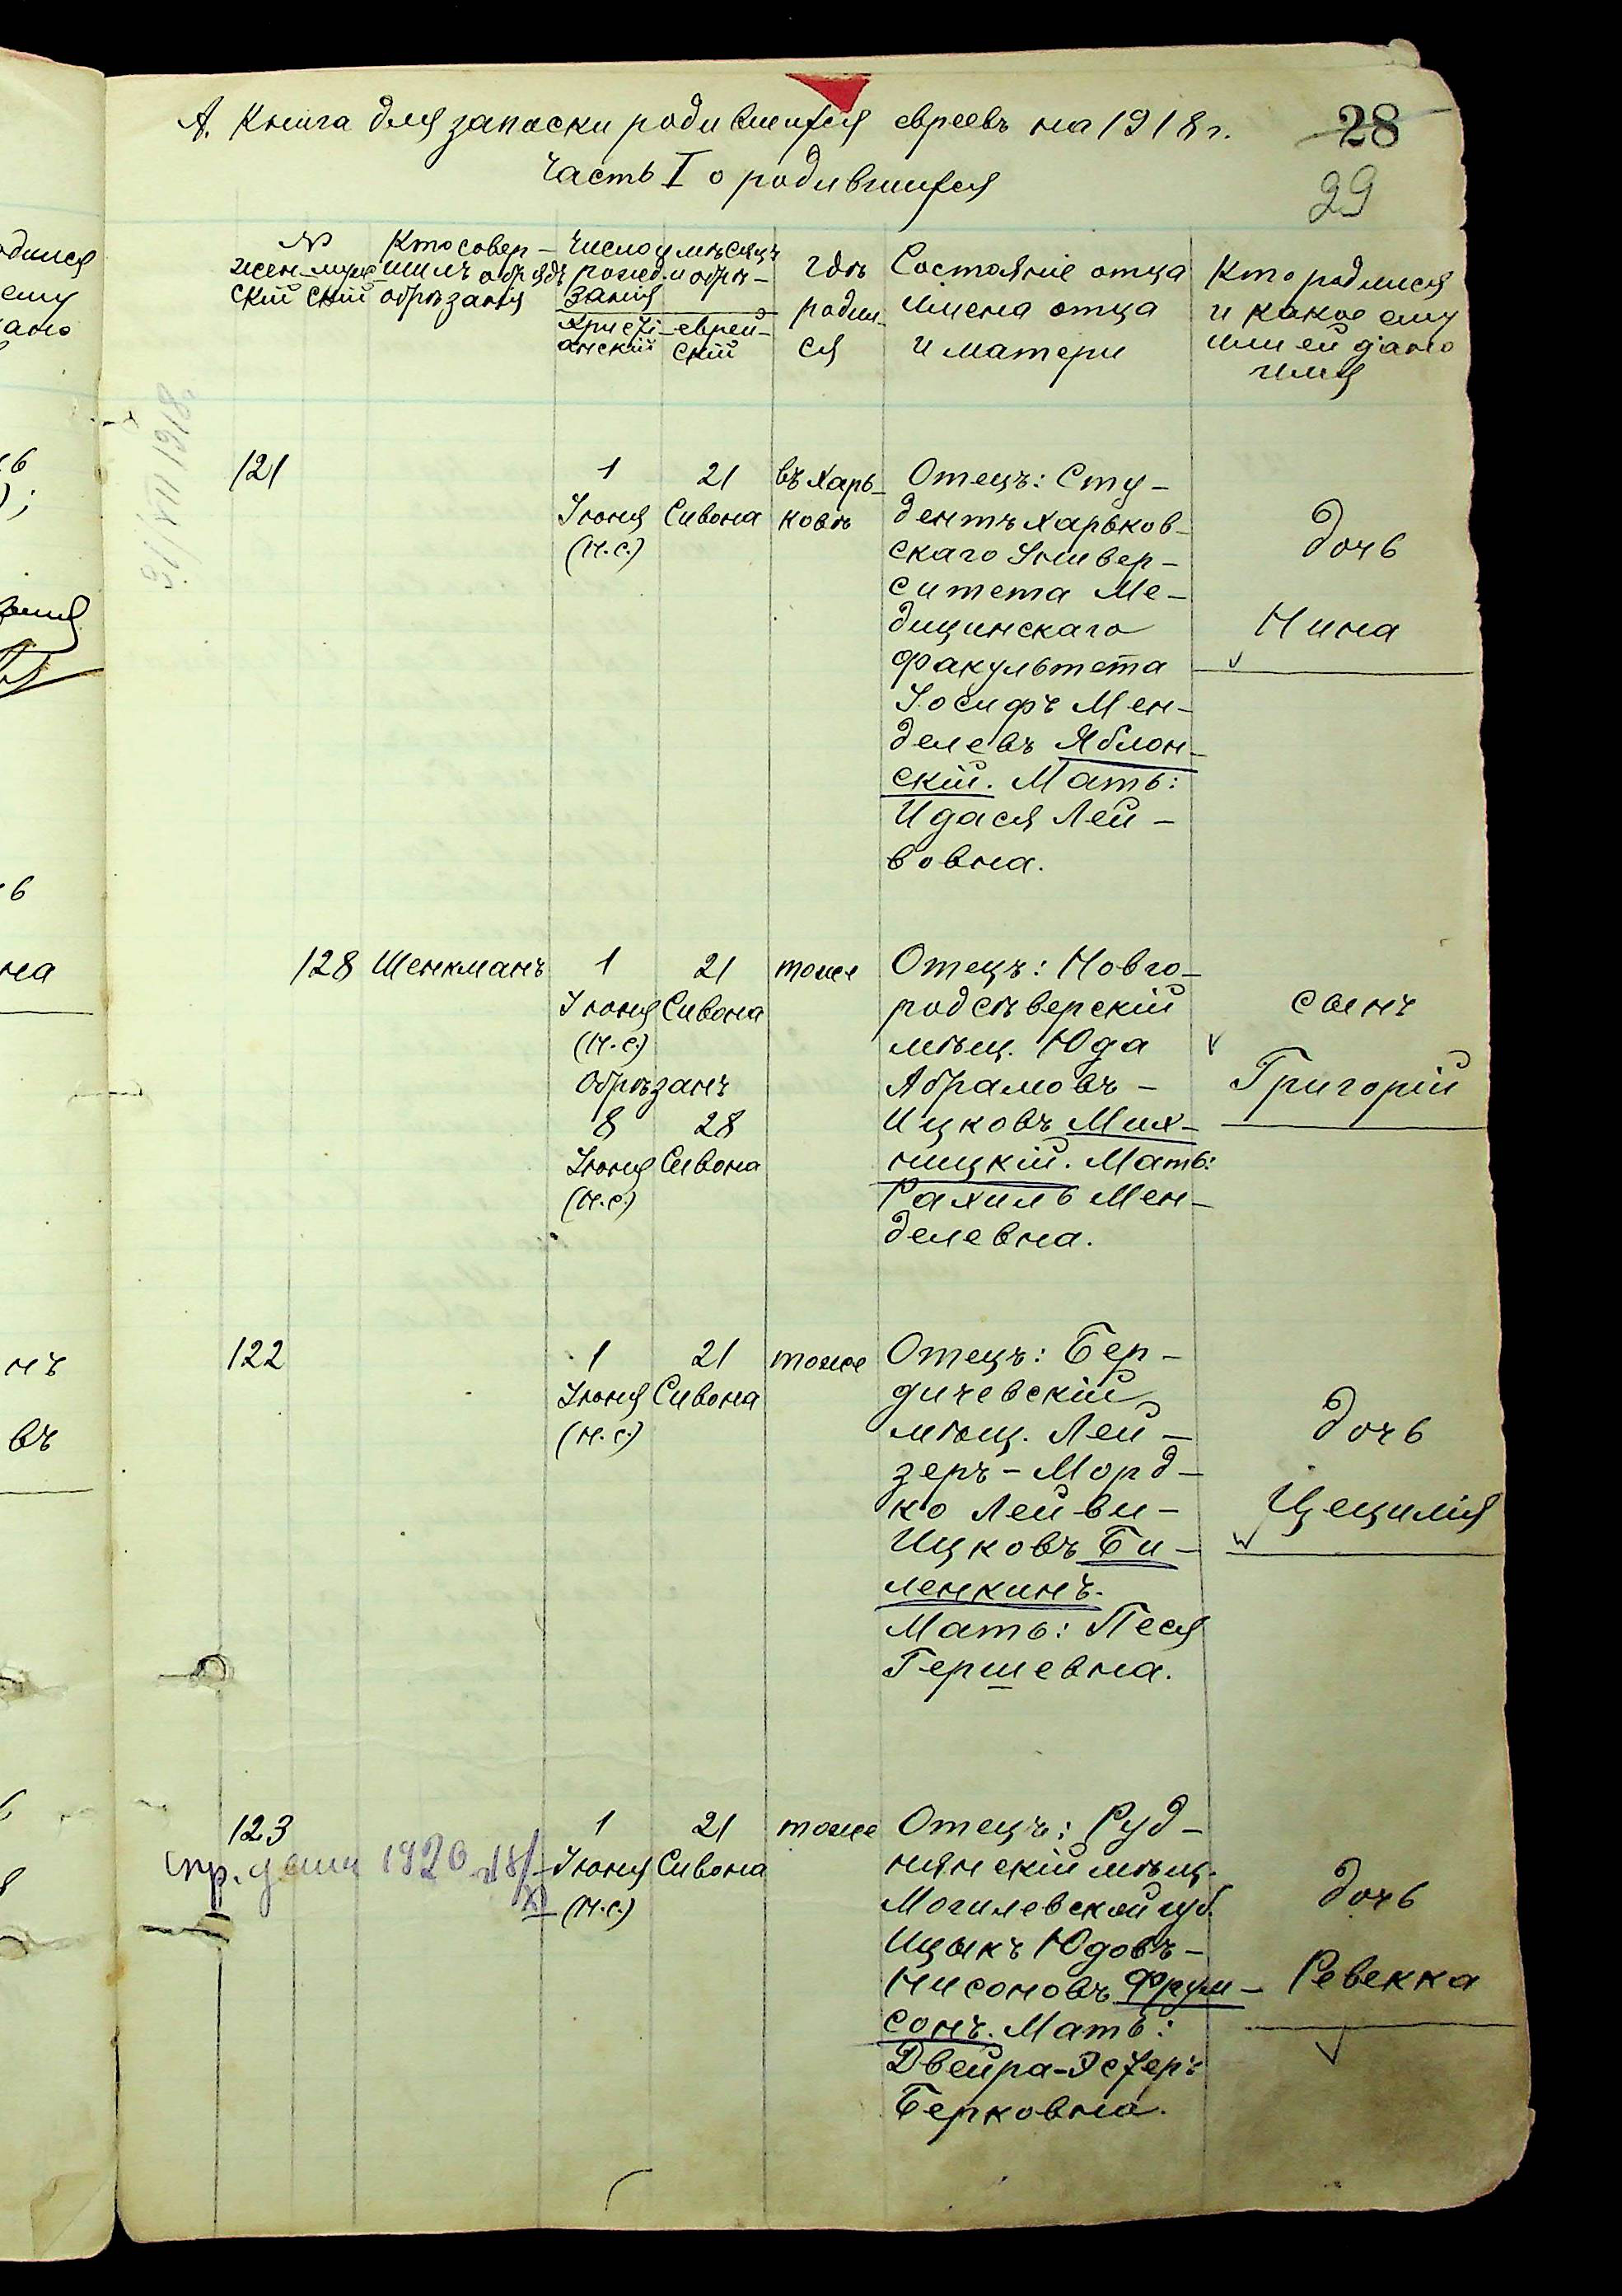 А. Книга для записки родившихся евреевъ на 1918 г.
28
29
Часть I о родившихся
№
жен- муж-
скій скій
Кто совер-
шилъ обрядъ
обрѣзанія
Число и мѣсяцъ
рожд. и обрѣ-
занія
Христі-
анскій
еврей-
скій
гдѣ
родил-
ся
Состояніе отца
Имена отца
и матери
Кто родился
и какое ему
или ей дано
имя
121
1
Іюня
(н.с.)
21
Сивона
въ Харь-
ковѣ
Отецъ: Сту-
дентъ Харьков-
скаго Универ-
ситета Ме-
дицинскаго
факультета
Іосифъ Мен-
делевъ Яблон-
скій. Мать:
Идася Лей-
бовна.
дочь
Нина
128
Шенкманъ
1
Іюня
(н.с.)
21
Сивона
Обрѣзанъ
8
Іюня
(н.с.)
28
Сивона
тоже
Отецъ: Новго-
родсѣверскій
мѣщ. Юда
Абрамовъ-
Ицковъ Мих-
ницкій. Мать:
Рахиль Мен-
делевна.
сынъ
Григорій
122
1
Іюня
(н.с.)
21
Сивона
тоже
Отецъ: Бер-
дичевскій
мѣщ. Лей-
зеръ-Морд-
ко Лейви-
Ицковъ Би-
ленкинъ.
Мать: Песя
Гершевна.
дочь
Цецилія
123
1920 18/XI
1
Іюня
(н.с.)
21
Сивона
тоже
Отецъ: Руд-
нянскій мѣщ.
Могилевской губ.
Ицыкъ Юдовъ-
Нисоновъ Фрум-
сонъ. Мать:
Двейра-Эсѳеръ
Берковна.
дочь
Ревекка